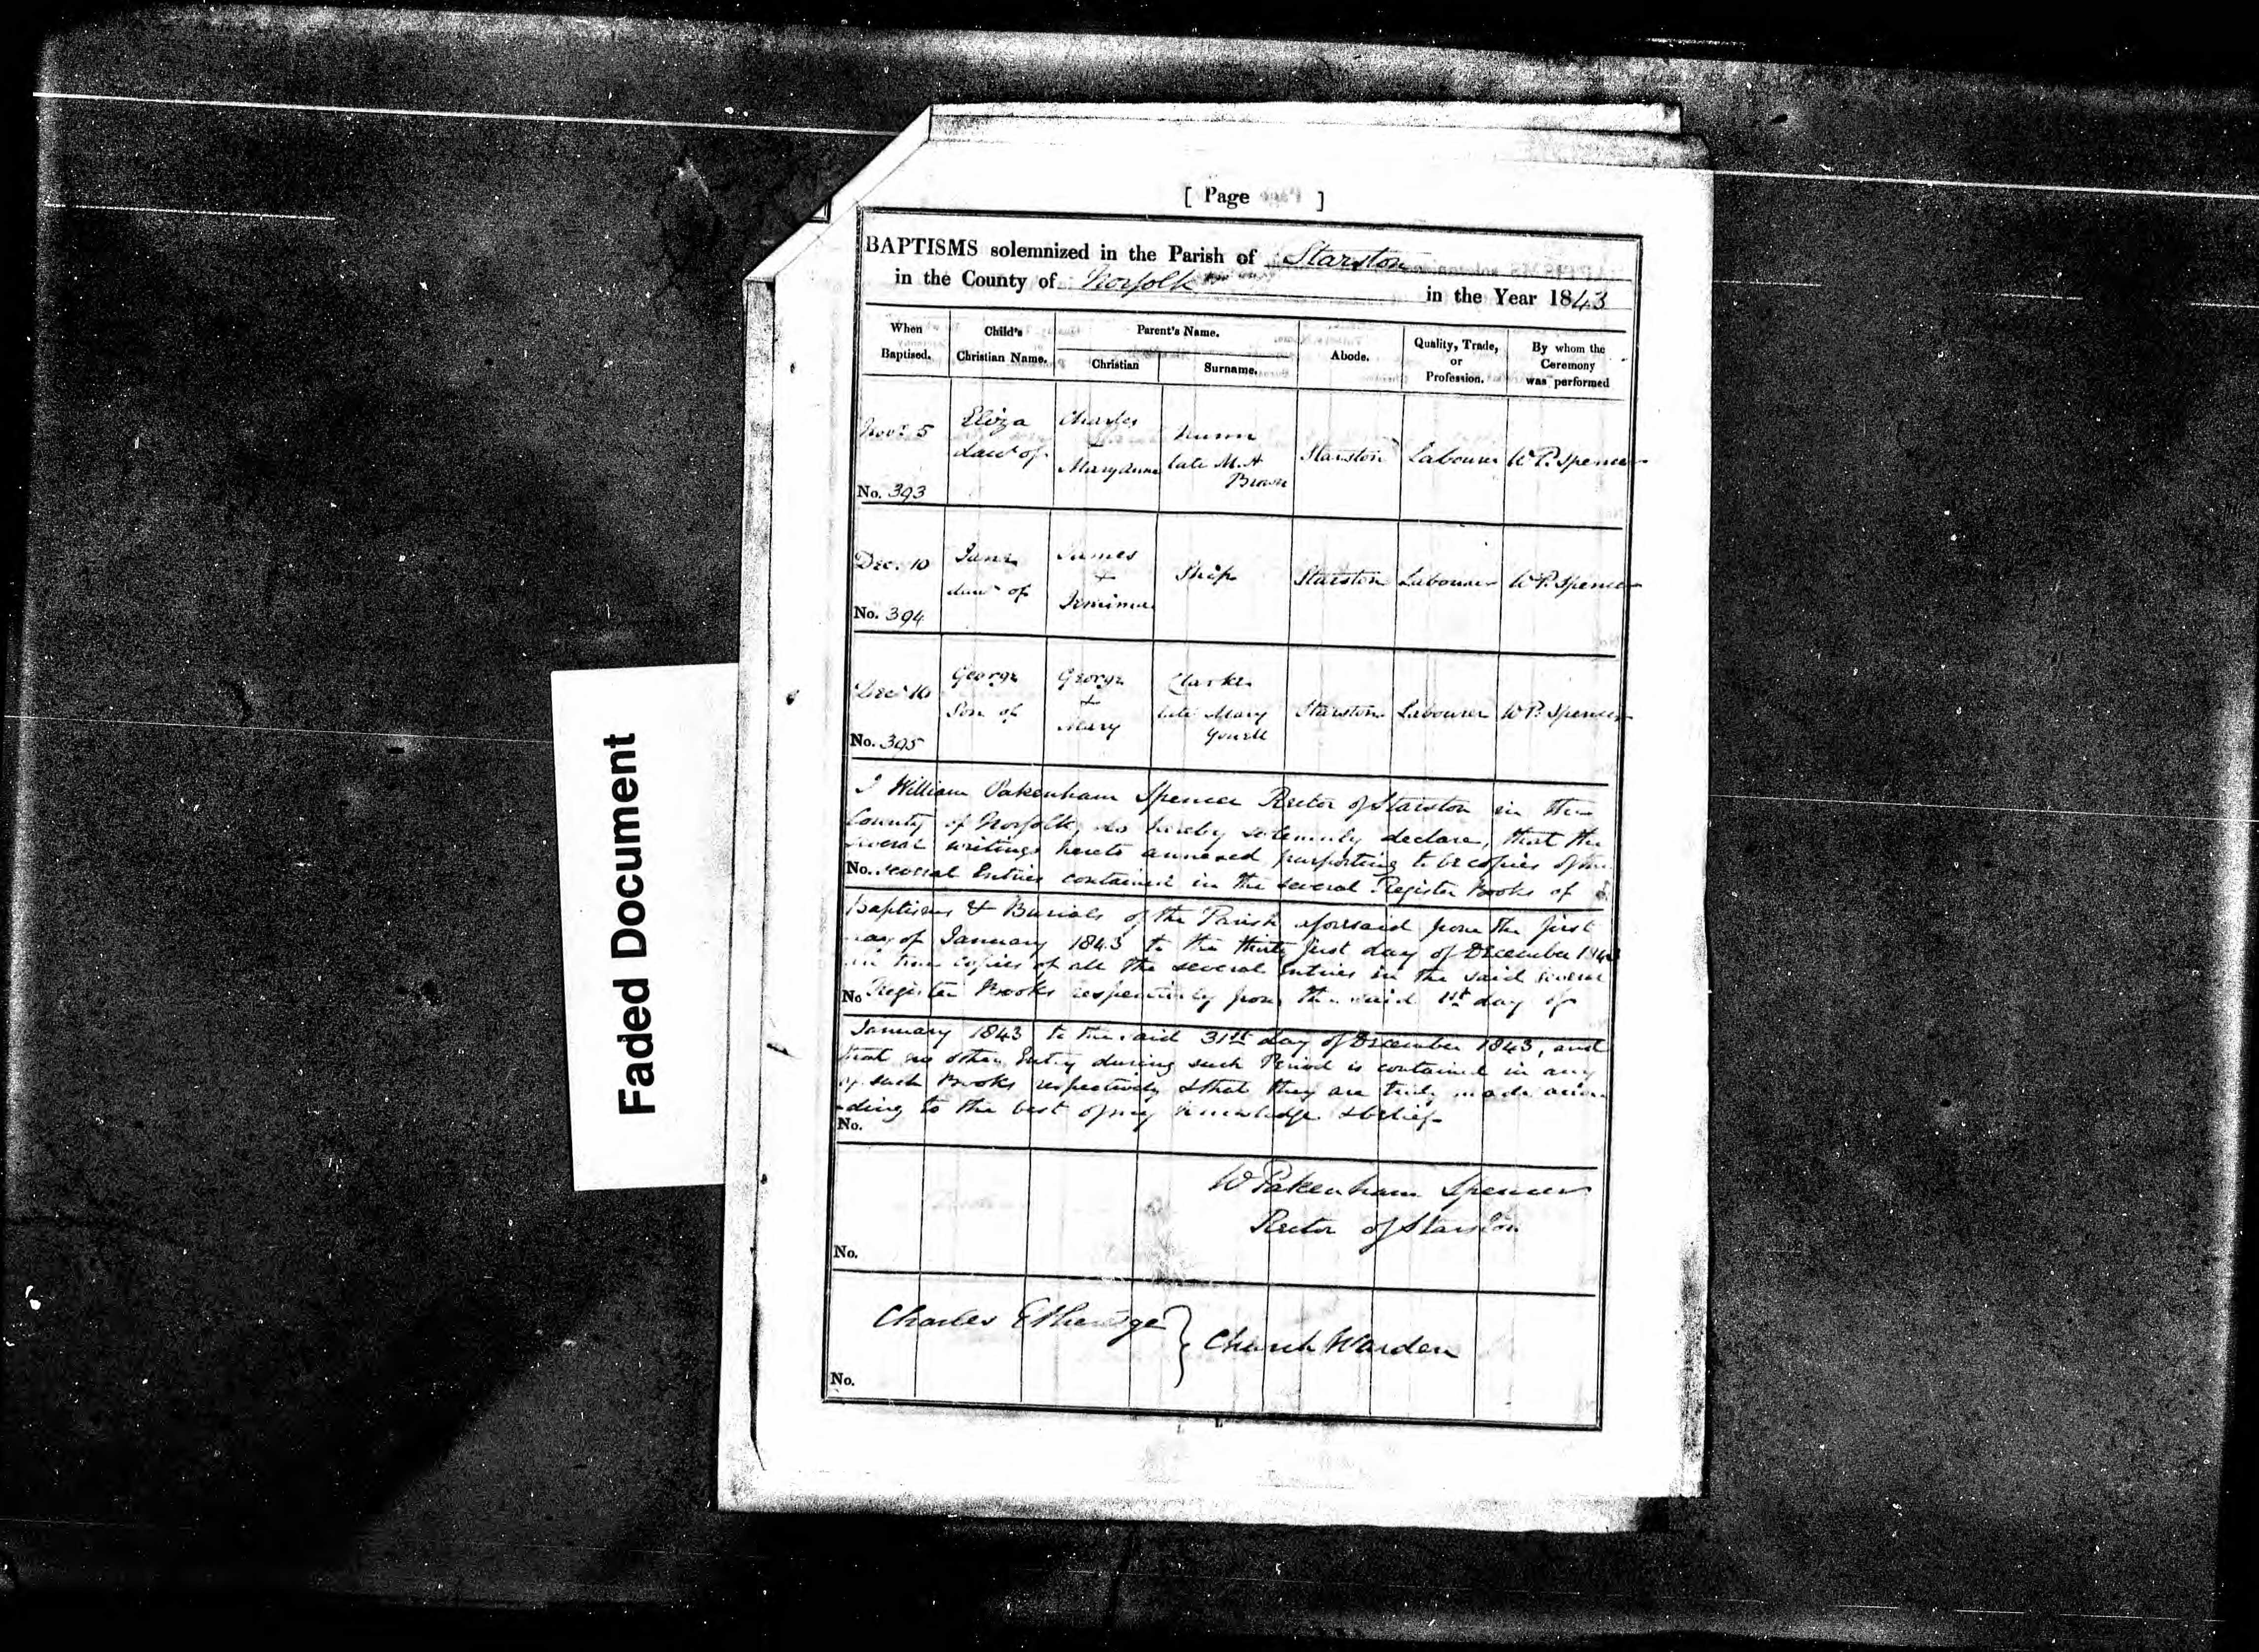 [ Page ]
BAPTISMS solemnized in the Parish of Starston
in the County of Norfolk in the Year 1843
When Baptised.
Child's Christian Name.
Parent's Name.
Christian
Surname.
Abode.
Quality, Trade, or Profession.
By whom the Ceremony was performed
Novr. 5
Eliza
daur of
Charles
+
Maryanne
Nunn
late M. A
Brown
Starston
Labourer
W P. Spencer
No. 393
Dec. 10
Jane
daur of
James
+
Jemima
Ship
Starston
Labourer
W P. Spencer
No. 394
Decr 10
George
Son of
George
+
Mary
Clarke
late Mary
Starston
Labourer
W P. Spencer
No. 395
I William Pakenham Spencer Rector of Starston in the
County of Norfolk, do hereby solemnly declare, that the
several writings hereto annexed purporting to be copies of the
No. several Entries contained in the several Register Books of
Baptisms & Burials of the Parish aforesaid from the first
day of January 1843 to the thirty first day of December 1843
are true copies of all the several Entries in the said several
No Register Books respectively from the said 1st day of
January 1843 to the said 31st day of December 1843, and
that no other Entry during such Period is contained in any
of such Books respectively & that they are truly made accor
-ding to the best of my knowledge & belief-
No.
W Pakenham Spencer
Rector of Starston
No.
Charles Etheridge } Church Warden
No.
Faded Document